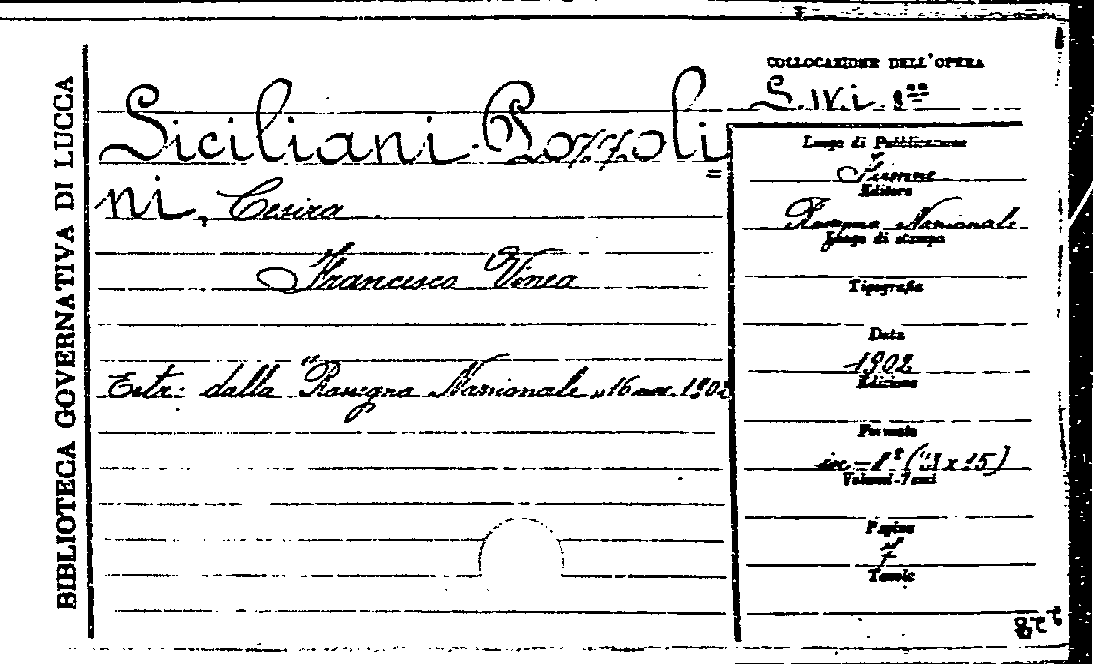 BIBLIOTECA GOVERNATIVA DI LUCCA
COLLOCAZIONE DELL'OPERA
Siciliani-Pozzoli=
ni, Cesira
Francesco Vinea
Estr. dalla "Rassegna Nazionale„ 16 1902
Luogo di Pubblicazione
Firenze
Editore
Rassegna Nazionale
Luogo di stampa
Tipografia
Data
1902
Edizione
Formato
in-8° ( x15)
Volumi-Tomi
Pagine
7
Tavole